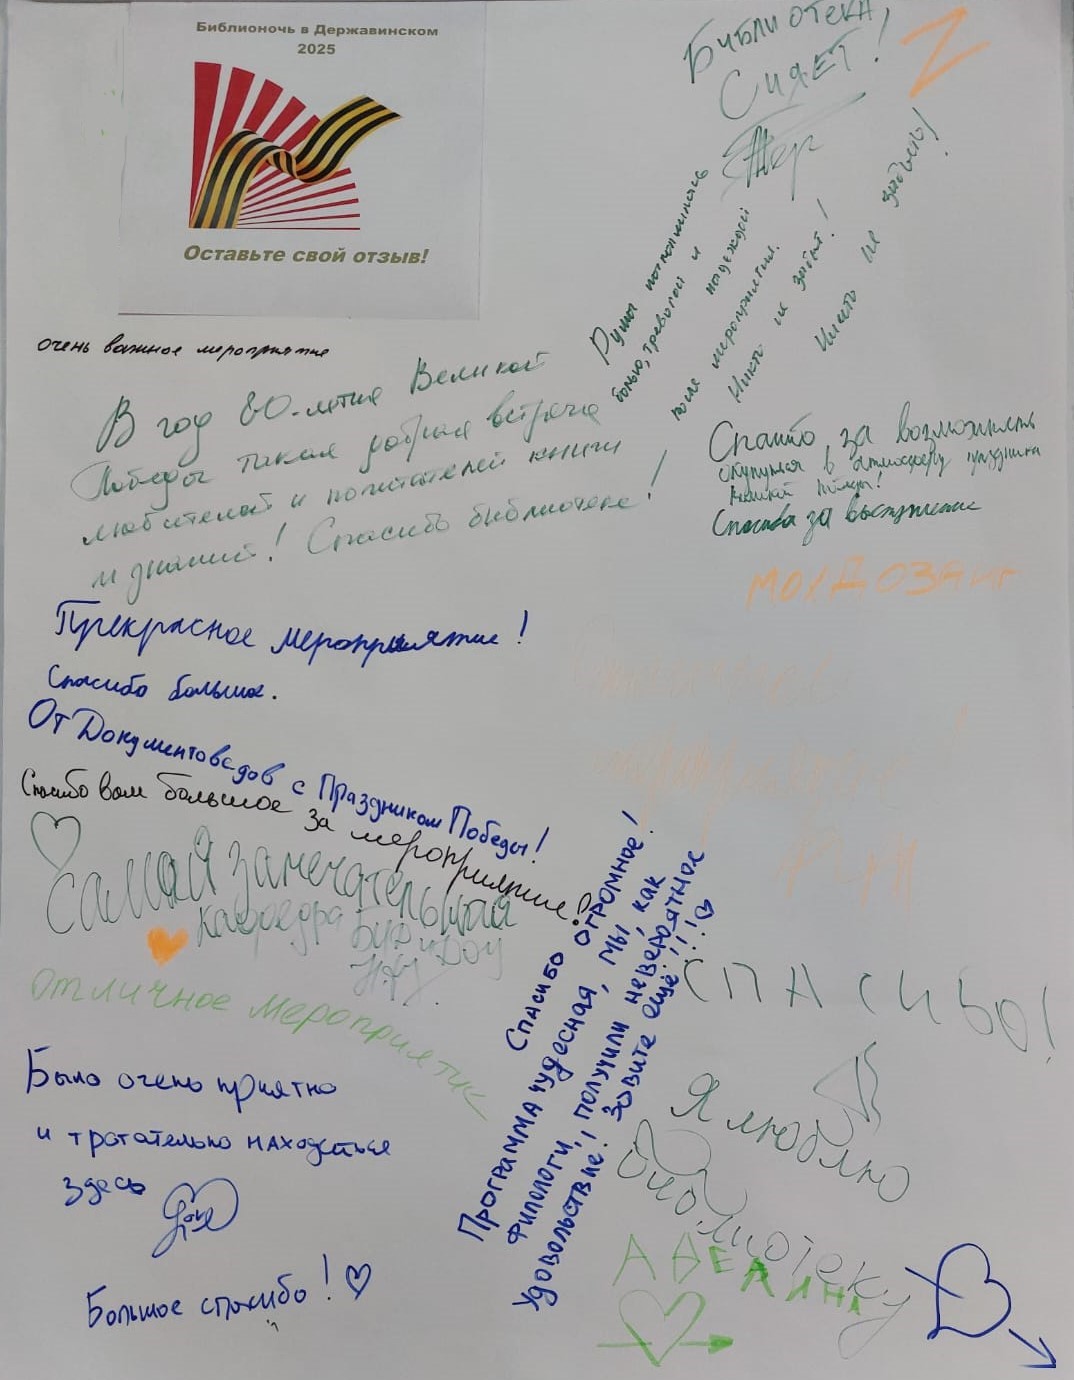 Библионочь в Державинском
2025
Оставьте свой отзыв!
БИБЛИОТЕКА,
СИЯЕТ!
Z
Душа наполнилась
болью, тревогой и надеждой
после мероприятия.
Никто не забыт!
Ничто не забыто!
очень важное мероприятие
В год 80-летия Великой
Победы такая добрая встреча
любителей и почитателей книги
и знаний! Спасибо библиотеке!
Спасибо за возможность
окунуться в атмосферу праздника
Великой Победы!
Спасибо за выступление
Прекрасное мероприятие!
Спасибо большое.
От Документоведов с Праздником Победы!
Спасибо вам большое за мероприятие!
Самая замечательная
Кафедра
ОТЛИЧНОЕ мероприятие
Было очень приятно
и трогательно находиться
здесь
Большое спасибо!
Спасибо ОГРОМНОЕ!
Программа чудесная, мы, как
филологи, получили невероятное
удовольствие! Зовите ещё!!!
СПАСИБО!
Я люблю
библиотеку
АДЕЛИНА